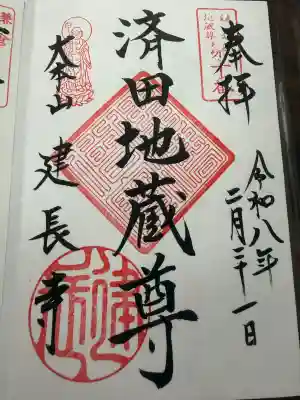 奉拝
令和八年
二月二十一日
済田地蔵尊
大本山
建長寺